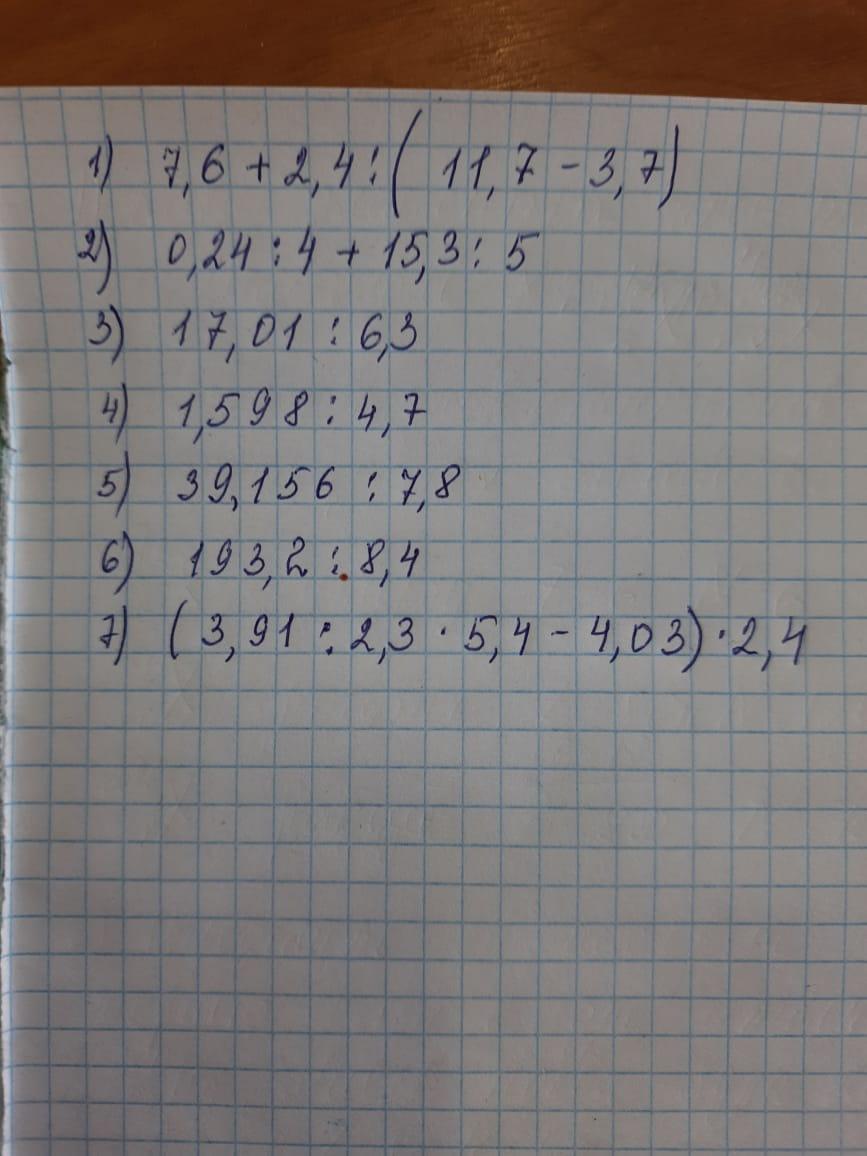 1) 7,6 + 2,4 : ( 11,7 - 3,7)
2) 0,24 : 4 + 15,3 : 5
3) 17,01 : 6,3
4) 1,598 : 4,7
5) 39,156 : 7,8
6) 193,2 : 8,4
7) ( 3,91 : 2,3 · 5,4 - 4,03) · 2,4